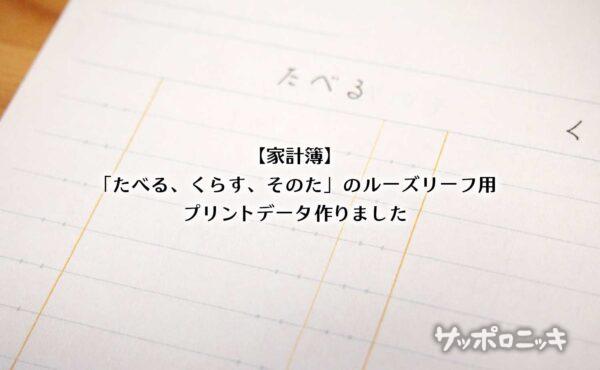 たべる
く
【家計簿】
「たべる、くらす、そのた」のルーズリーフ用
プリントデータ作りました
サッポロニッキ